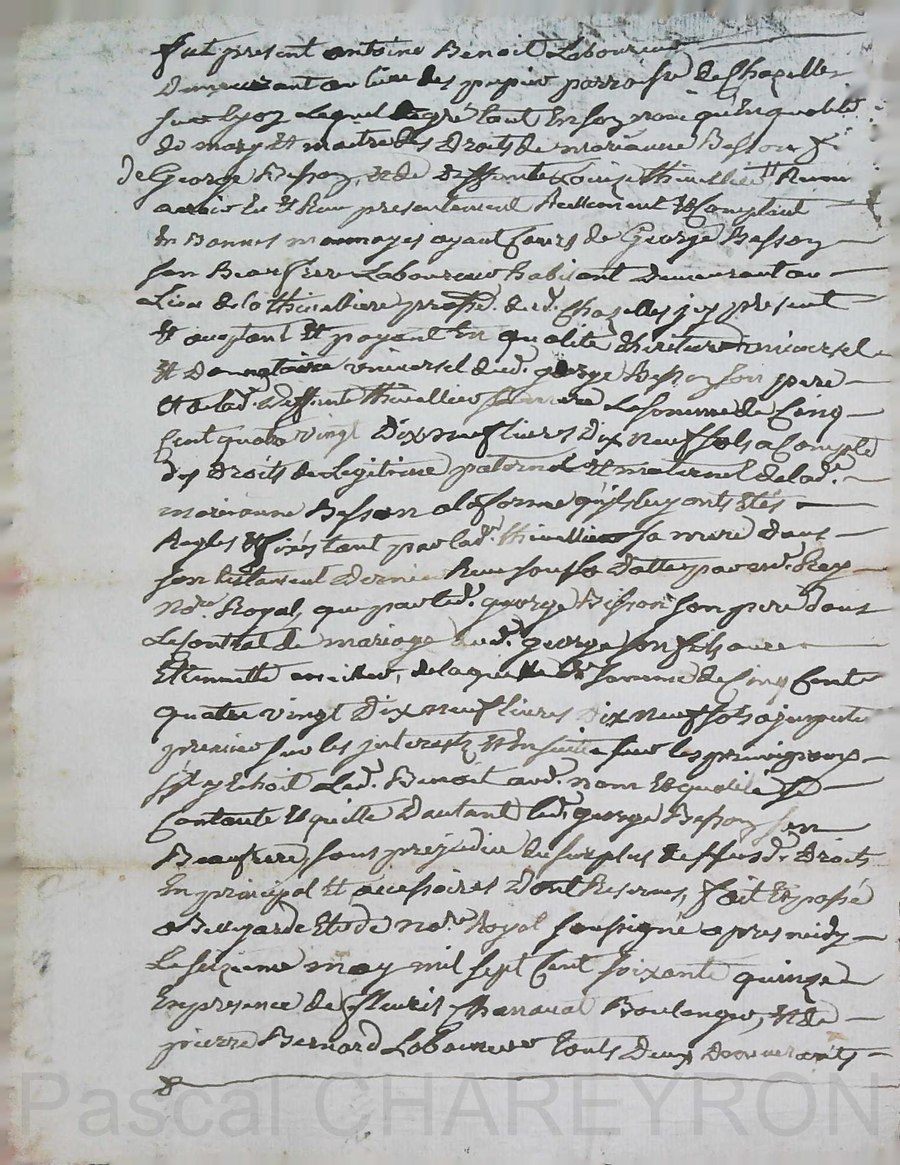 fut present antoine Benoit Laboureur
Demeurant au lieu des papier parroisse de Chazelles
sur Lyon Lequel de gré tant En son nom qu'En qualité
de mary Et maitre des Droits de marianne Besson f.e
De George Besson, Et de deffunte Louise thivillier
a Et Reçu presentement Reellement Et Comptant
En Bonnes monnoyes ayant Cours de George Besson
son Beaufrere Laboureur habitant demeurant au
Lieu de la thivilliere parroisse dud. Chazelles jcy present
Et aceptant Et payant En qualité d'heritier universel
Et Donnataire universel dud. george Besson son pere
Et de lad. deffunte thivillier sa mere La somme de Cinq
Cent quatre vingt Dix neuf livres Dix neuf sols a Compte
des Droits de Legitime paternel Et maternel de lad.e
marianne Besson a la forme qu'ils luy ont Etés
Regles Et fixés tant par lad.e thivillier sa mere dans
son testament dernier Reçu sous sa Datte par
No.re Royal, que par led. george Besson son pere dans
Le Contrat de mariage dud. george son fils avec
Etiennette de laquelle somme de Cinq Cent
quatre vingt Dix neuf livres Dix neuf sols a jmputer
premier sur les jnterests Et Ensuitte sur les principaux
s'il y Echoit Led. Benoit aud. nom Et qualité se
Contente Et quitte d'autant led. george Besson son
Beaufrere, sans prejudice du surplus de sesd. Droits
En principal Et accessoires Dont Reserves, fait Et passé
a Bellegarde Etude No.re Royal soussigné apres midy
Le seizieme may mil sept Cent soixante quinze
En presence de fleuris Chanavat Boulanger, Et de
pierre Bernard Laboureur touts Deux Demeurants
Pascal CHAREYRON